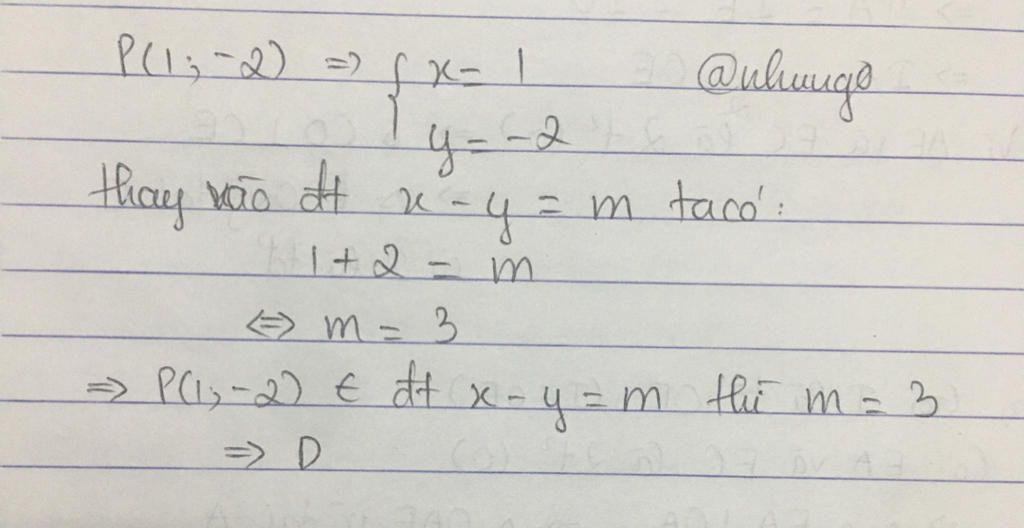 P(1; -2) => { x = 1 @nhungo
y = -2
thay vào đt x - y = m ta có:
1 + 2 = m
<=> m = 3
=> P(1; -2) ∈ đt x - y = m thì m = 3
=> D